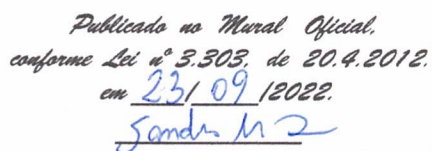 Publicado no Mural Oficial,
conforme Lei nº 3.303, de 20.4.2012.
em 23/ 09 /2022.